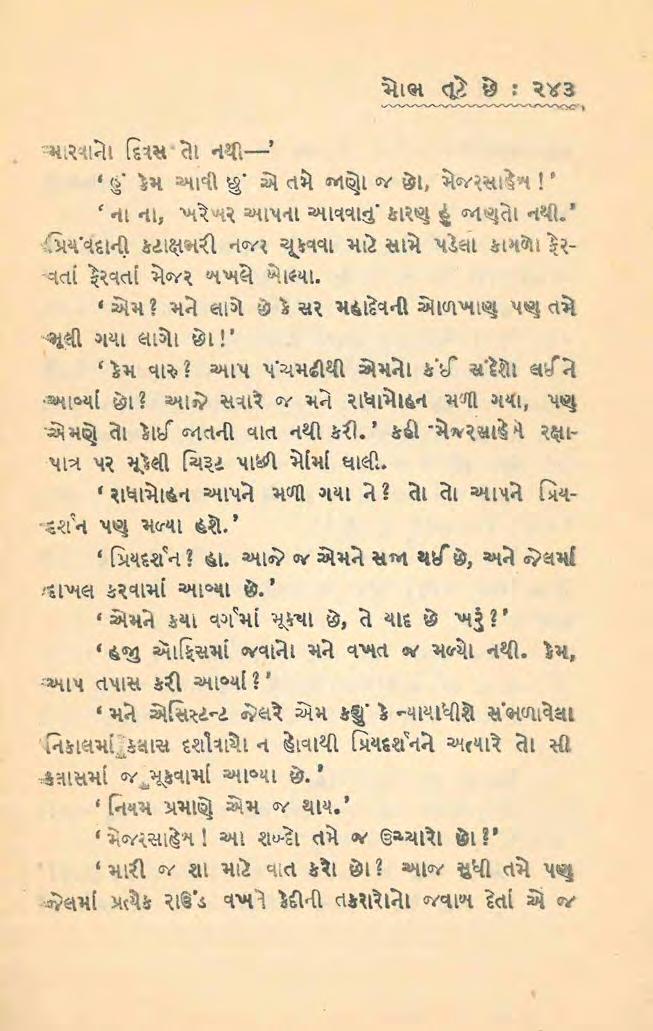 મોભ તૂટે છે : ૨૪૩
મારવાનો દિવસ તો નથી—’
‘ હું કેમ આવી છું એ તમે જાણો જ છો, મેજરસાહેબ !’
‘ ના ના, ખરેખર આપના આવવાનું કારણ હું જાણતો નથી.’
પ્રિયંવદાની કટાક્ષભરી નજર ચૂકવવા માટે સામે પડેલા કાગળો ફેર-
વતાં ફેરવતાં મેજર બખલે બોલ્યા.
‘ એમ ? મને લાગે છે કે સર મહાદેવની ઓળખાણ પણ તમે
ભૂલી ગયા લાગો છો !’
‘ કેમ વારુ ? આપ પંચમઢીથી એમનો કંઈ સંદેશો લઈને
આવ્યાં છો ? આજે સવારે જ મને રાધામોહન મળી ગયા, પણ
એમણે તો કોઈ જાતની વાત નથી કરી.’ કહી મેજરસાહેબે રક્ષા-
પાત્ર પર મૂકેલી ચિરૂટ પાછી મોંમાં ઘાલી.
‘ રાધામોહન આપને મળી ગયા ને ? તો તો આપને પ્રિય-
દર્શન પણ મળ્યા હશે.’
‘ પ્રિયદર્શન ? હા. આજે જ એમને સજા થઈ છે, અને જેલમાં
દાખલ કરવામાં આવ્યા છે.’
‘ એમને કયા વર્ગમાં મૂક્યા છે, તે યાદ છે ખરું ?’
‘ હજી ઑફિસમાં જવાનો મને વખત જ મળ્યો નથી. કેમ,
આપ તપાસ કરી આવ્યાં ?’
‘ મને એસિસ્ટન્ટ જેલરે એમ કહ્યું કે ન્યાયાધીશે સંભળાવેલા
નિકાલમાં ક્લાસ દર્શાવાયો ન હોવાથી પ્રિયદર્શનને અત્યારે તો સી
ક્લાસમાં જ મૂકવામાં આવ્યા છે.’
‘ નિયમ પ્રમાણે એમ જ થાય.’
‘ મેજરસાહેબ ! આ શબ્દો તમે જ ઉચ્ચારો છો ?’
‘ મારી જ શા માટે વાત કરો છો ? આજ સુધી તમે પણ
જેલમાં પ્રત્યેક રાઉંડ વખતે કેદીની તકરારોનો જવાબ દેતાં એ જ